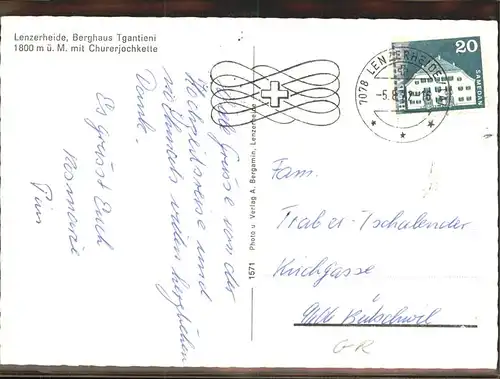 Lenzerheide, Berghaus Tgantieni
1800 m ü. M. mit Churerjochkette
Grüsse von der
Hochzeitsreise und
nochmals vielen herzlichen
Dank.
Es grüsst Euch
Rosmarie
1571 Photo u. Verlag A. Bergamin, Lenzerheide
7078 LENZERHEIDE
-5.8
20
SAMEDAN
Fam.
Traber-Tschalender
Kirchgasse
Bütschwil
GR